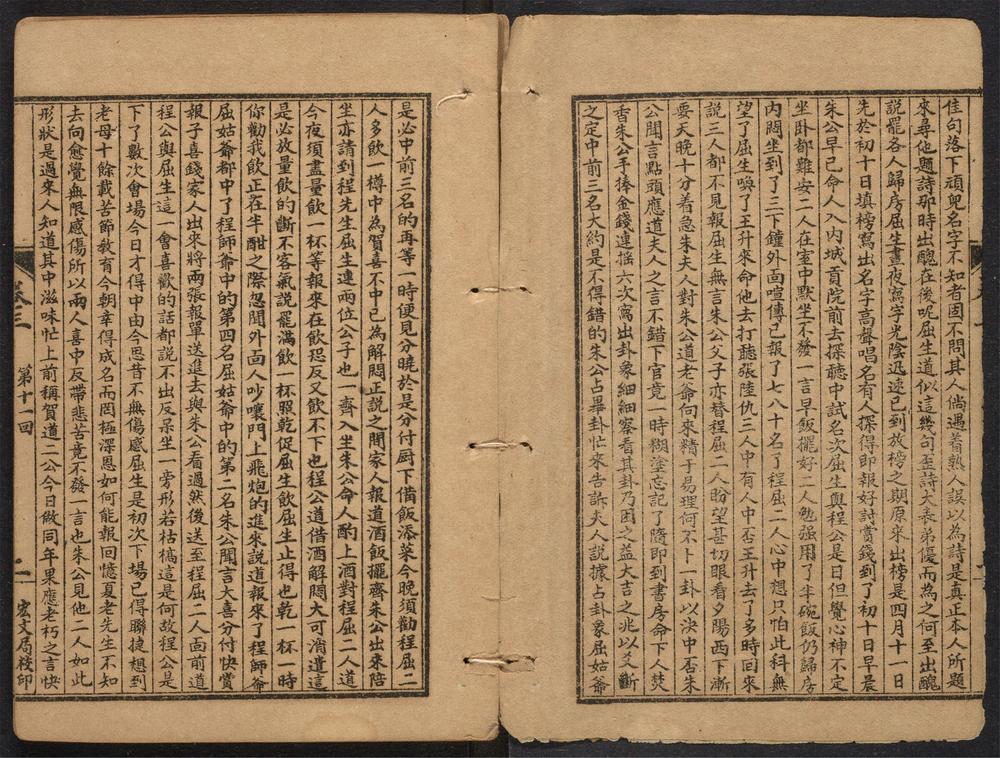 佳句落下頑兒名字不知者固不問其人倘遇着熟人誤以為詩是真正本人所題
來尋他題詩那時出醜在後呢屈生道似這幾句歪詩大表弟優而為之何至出醜
說罷各人歸房屈生晝夜寫字光陰迅速已到放榜之期原來出榜是四月十一日
先於初十日填榜寫出名字高聲唱名有人探得即報好討賞錢到了初十日早晨
朱公早已命人入內城貢院前去探聽中試名次屈生與程公是日但覺心神不定
坐卧都難安二人在室中默坐不發一言早飯擺好二人勉强用了半碗飯仍歸房
內悶坐到了三下鐘外面喧傳已報了七八十名了程屈二人心中想只怕此科無
望了屈生喚了王升來命他去打聽張陸仇三人中有人中否王升去了多時回來
說三人都不見報屈生無言朱公父子亦替程屈二人盼望甚切眼看夕陽西下漸
要天晚十分着急朱夫人對朱公道老爺向來精于易理何不卜一卦以決中否朱
公聞言點頭應道夫人之言不錯下官竟一時糊塗忘記了隨即到書房命下人焚
香朱公手捧金錢連搖六次寫出卦象細細察看其卦乃困之益大吉之兆以爻斷
之定中前三名大約是不得錯的朱公占畢卦忙來告訴夫人說據占卦象屈姑爺
是必中前三名的再等一時便見分曉於是分付厨下備飯添菜今晚須勸程屈二
人多飲一樽中為賀喜不中已為解悶正說之間家人報道酒飯擺齊朱公出來陪
坐亦請到程先生屈生連兩位公子也一齊入坐朱公命人酌上酒對程屈二人道
今夜須盡量飲一杯等報來在飲恐反又飲不下也程公道借酒解悶大可消遣這
是必放量飲的斷不客氣說罷滿飲一杯照乾促屈生飲屈生止得也乾一杯一時
你勸我飲正在半酣之際忽聞外面人吵嚷門上飛炮的進來說道報來了程師爺
屈姑爺都中了程師爺中的第四名屈姑爺中的第二名朱公聞言大喜分付快賞
報子喜錢家人出來將兩張報單送進去與朱公看過然後送至程屈二人面前道
程公與屈生這一會喜歡的話都說不出反呆坐一旁形若枯槁這是何故程公是
下了數次會場今日才得中由今思昔不無傷感屈生是初次下場已得聯捷想到
老母十餘載苦節教育今朝幸得成名而罔極深恩如何能報回憶夏老先生不知
去向愈覺無限感傷所以兩人喜中反帶悲苦竟不發一言也朱公見他二人如此
形狀是過來人知道其中滋味忙上前稱賀道二公今日做同年果應老朽之言快
卷三
第十一回
二
宏文局校印